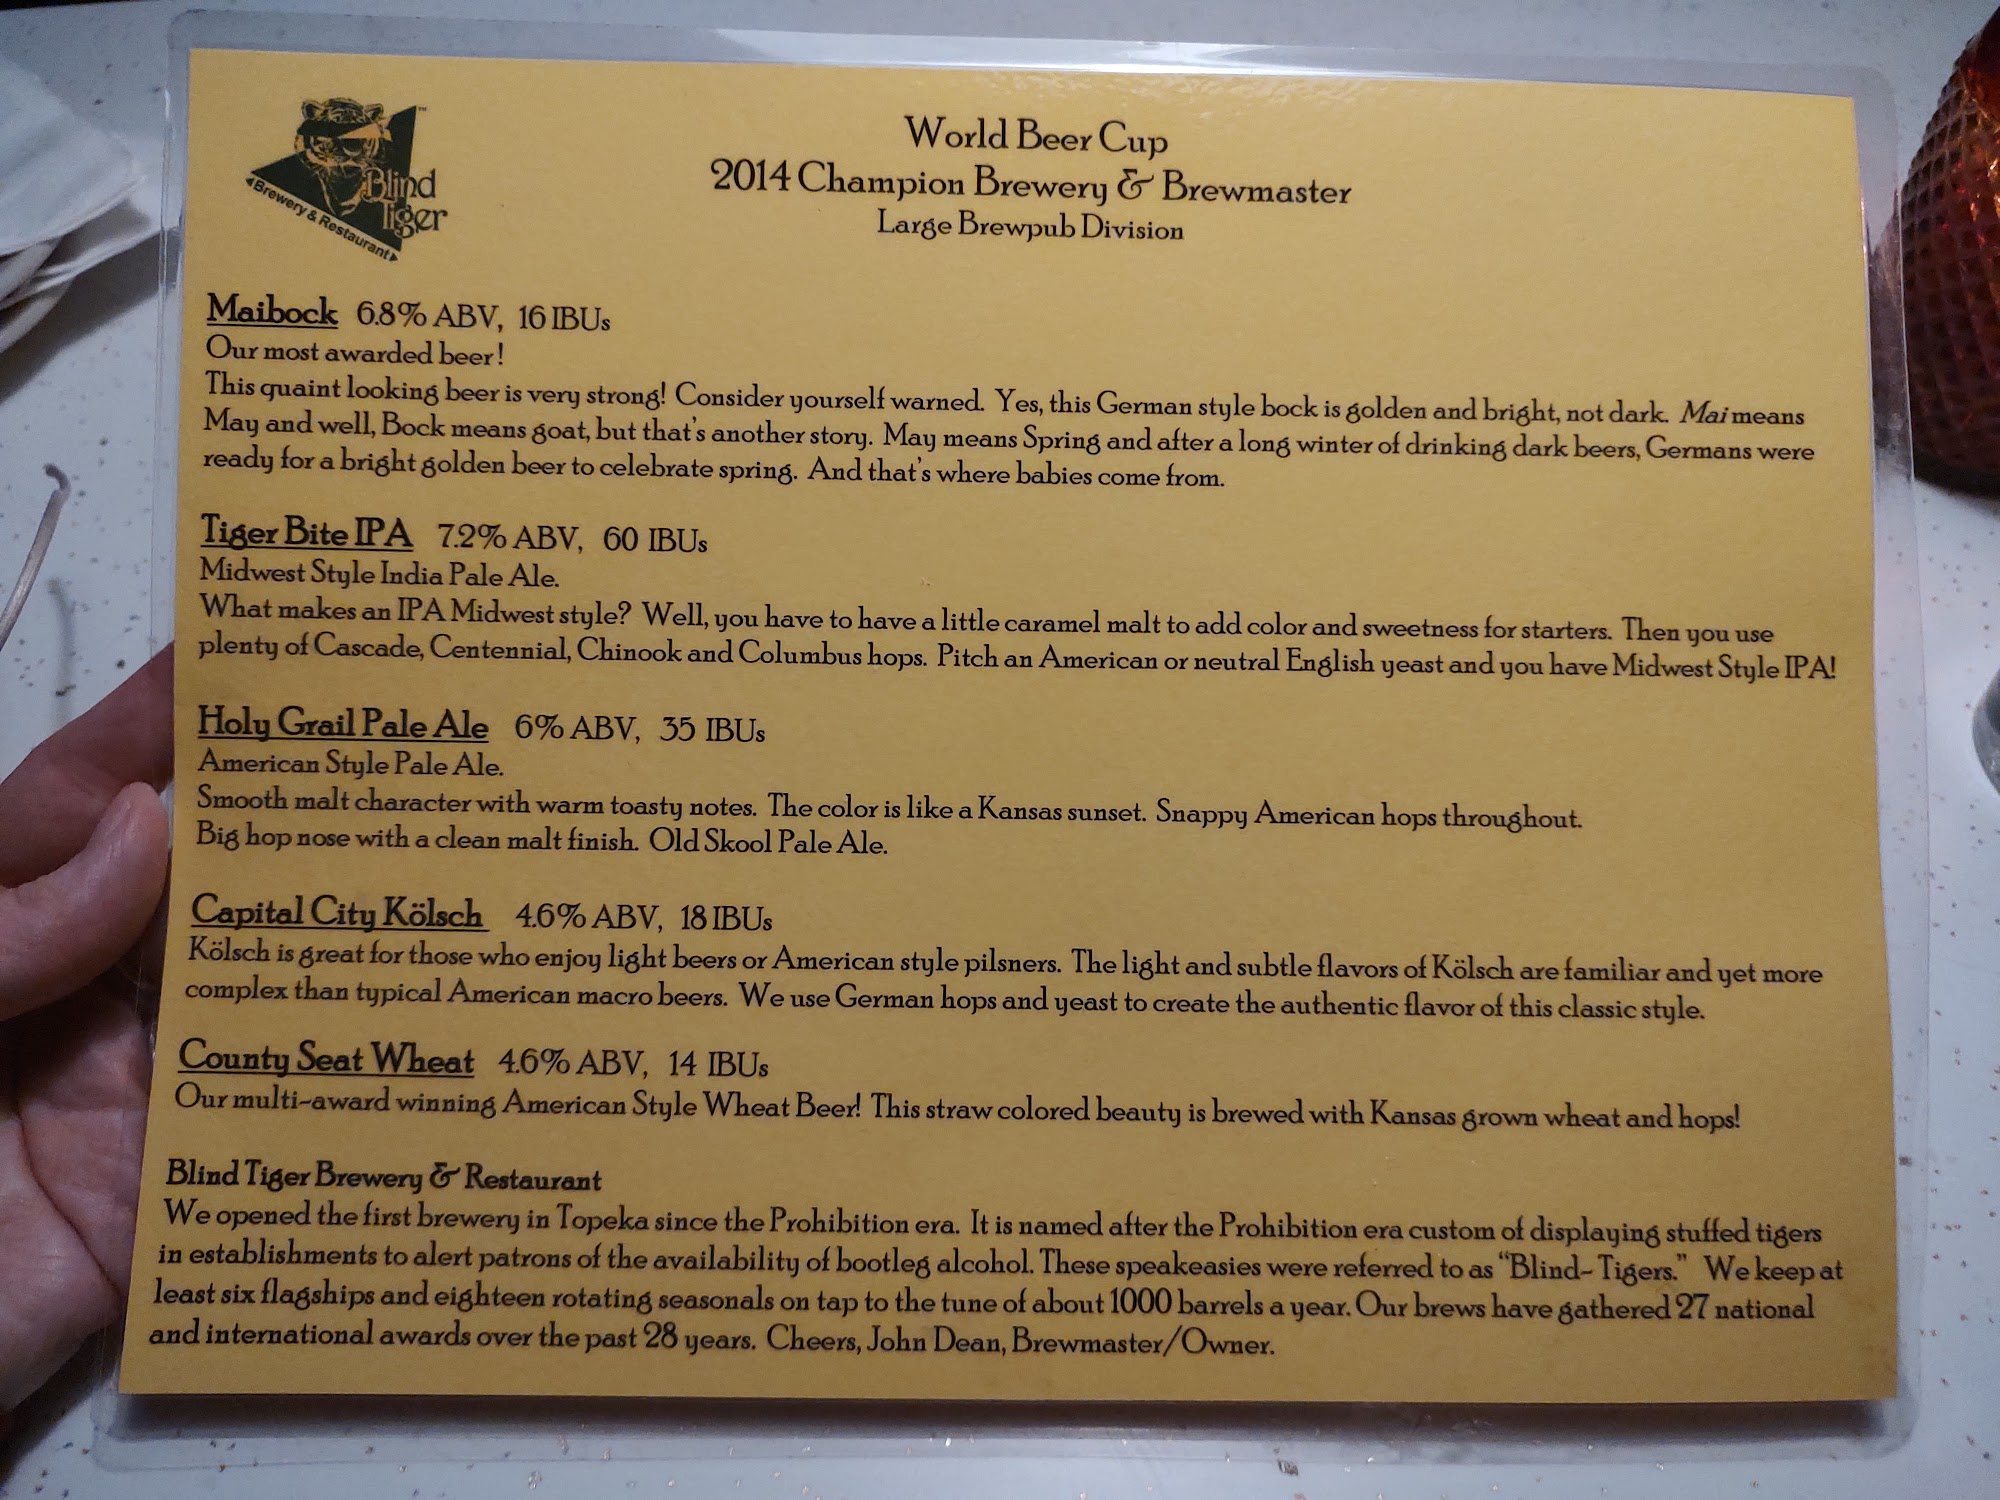 Blind
Tiger
Brewery & Restaurant
TM
World Beer Cup
2014 Champion Brewery & Brewmaster
Large Brewpub Division
Maibock 6.8% ABV, 16 IBUs
Our most awarded beer!
This quaint looking beer is very strong! Consider yourself warned. Yes, this German style bock is golden and bright, not dark. Mai means
May and well, Bock means goat, but that's another story. May means Spring and after a long winter of drinking dark beers, Germans were
ready for a bright golden beer to celebrate spring. And that's where babies come from.
Tiger Bite IPA 7.2% ABV, 60 IBUs
Midwest Style India Pale Ale.
What makes an IPA Midwest style? Well, you have to have a little caramel malt to add color and sweetness for starters. Then you use
plenty of Cascade, Centennial, Chinook and Columbus hops. Pitch an American or neutral English yeast and you have Midwest Style IPA!
Holy Grail Pale Ale 6% ABV, 35 IBUs
American Style Pale Ale.
Smooth malt character with warm toasty notes. The color is like a Kansas sunset. Snappy American hops throughout.
Big hop nose with a clean malt finish. Old Skool Pale Ale.
Capital City Kölsch 4.6% ABV, 18 IBUs
Kölsch is great for those who enjoy light beers or American style pilsners. The light and subtle flavors of Kölsch are familiar and yet more
complex than typical American macro beers. We use German hops and yeast to create the authentic flavor of this classic style.
County Seat Wheat 4.6% ABV, 14 IBUs
Our multi-award winning American Style Wheat Beer! This straw colored beauty is brewed with Kansas grown wheat and hops!
Blind Tiger Brewery & Restaurant
We opened the first brewery in Topeka since the Prohibition era. It is named after the Prohibition era custom of displaying stuffed tigers
in establishments to alert patrons of the availability of bootleg alcohol. These speakeasies were referred to as “Blind-Tigers.” We keep at
least six flagships and eighteen rotating seasonals on tap to the tune of about 1000 barrels a year. Our brews have gathered 27 national
and international awards over the past 28 years. Cheers, John Dean, Brewmaster/Owner.